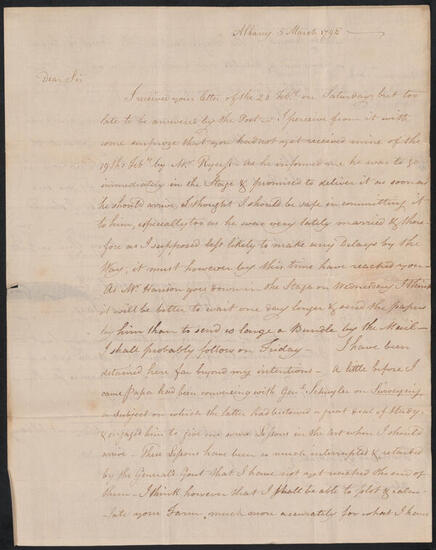 Albany 5 March 1795
Dear Sir
I received your letter of the 28 Feb.y on Saturday but too
late to be answered by the Post – I perceive from it with
some surprize that you had not yet received mine of the
19th Feb.y by Mr. As he informed me he was to go
immediately in the Stage & promised to deliver it as soon as
he should arrive, I thought I should be safe in committing it
to him, especially too as he was very lately married & there-
fore as I supposed less likely to make any Delays by the
Way; it must however by this time have reached you –
As Mr. Harison goes down in the Stage on Wednesday I think
it will be better to wait one day longer & send the papers
by him than to send so large a Bundle by the Mail –
I shall probably follow on Friday – I have been
detained here far beyond my intentions – A little before I
came Papa had been conversing with Genl. Schuyler on Surveying
a subject on which the latter had bestowed a great deal of Study,
& engaged him to give me some Lessons in the art when I should
arrive – These Lessons have been so much interrupted & retarded
by the General's Gout that I have not yet reached the end of
them – I think however that I shall be able to plot & calcu-
late your Farm, much more accurately for what I have